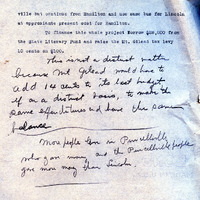 ville but continue from Hamilton and use same bus for Lincoln
at approximate present cost for Hamilton.
To finance this whole project Borrow $
from the State Literary Fund and raise the Mt. Gilead tax levy
10 cents on $100.
This is not a district matter
because Mt Gilead would have to
add 14 cents to its last budget
if on a district basis, to make the
same expenditures and have the same
balance
More people live in Purcellville
who give money and the Purcellville people
give more money than Lincoln.